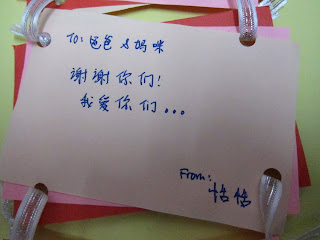 To: 爸爸 & 妈咪
谢谢你们!
我爱你们...
From:
恬恬